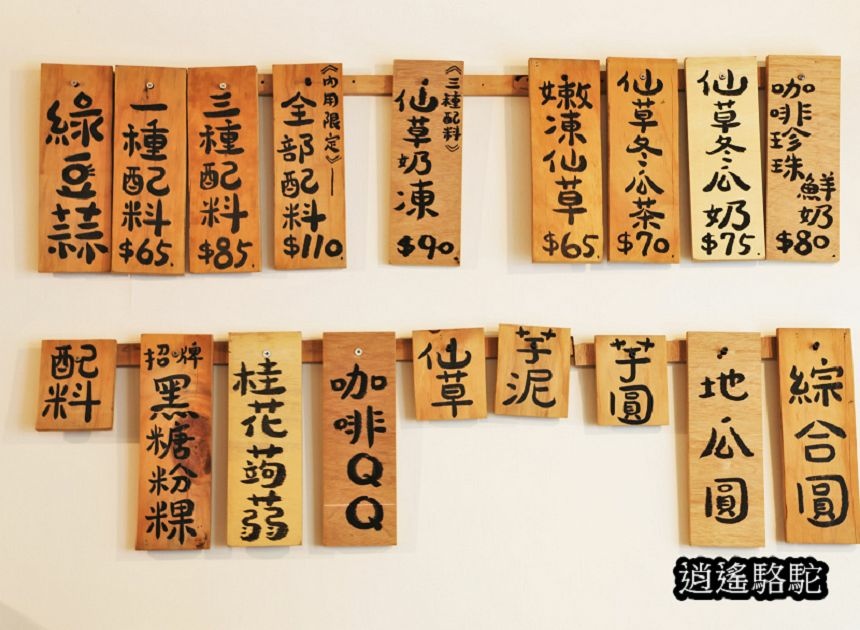 綠豆蒜
一種配料
$65.
三種配料
$85.
《內用限定》
全部配料
$110.
《三種配料》
仙草奶凍
$90.
嫩凍仙草
$65.
仙草冬瓜茶
$70.
仙草冬瓜奶
$75.
咖啡珍珠
鮮奶
$80
配料
招牌
黑糖粉粿
桂花蒟蒻
咖啡QQ
仙草
芋泥
芋圓
地瓜圓
綜合圓
逍遙駱駝